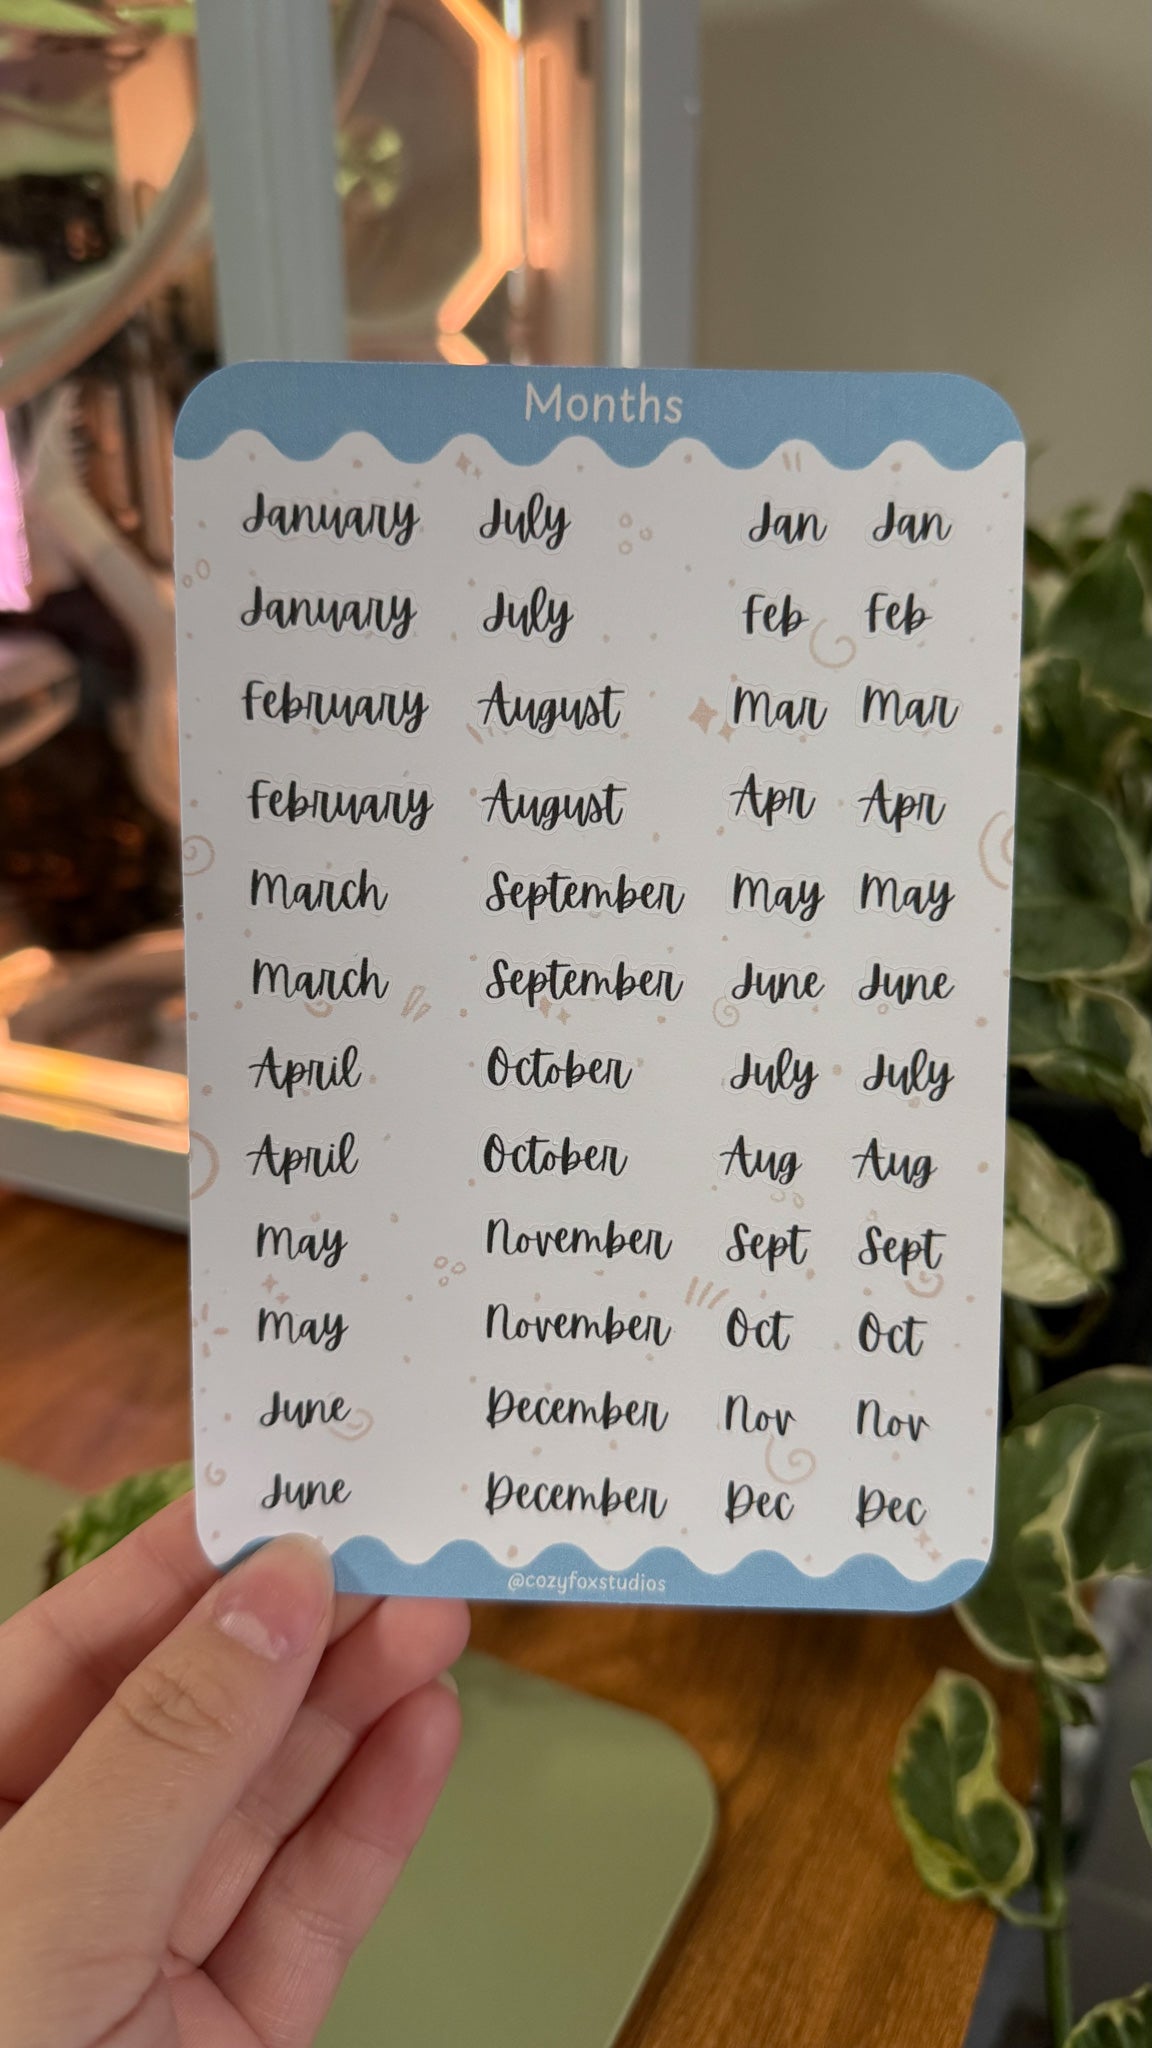 Months
January July Jan Jan
January July Feb Feb
February August Mar Mar
February August Apr Apr
March September May May
March September June June
April October July July
April October Aug Aug
May November Sept Sept
May November Oct Oct
June December Nov Nov
June December Dec Dec
@cozyfoxstudios